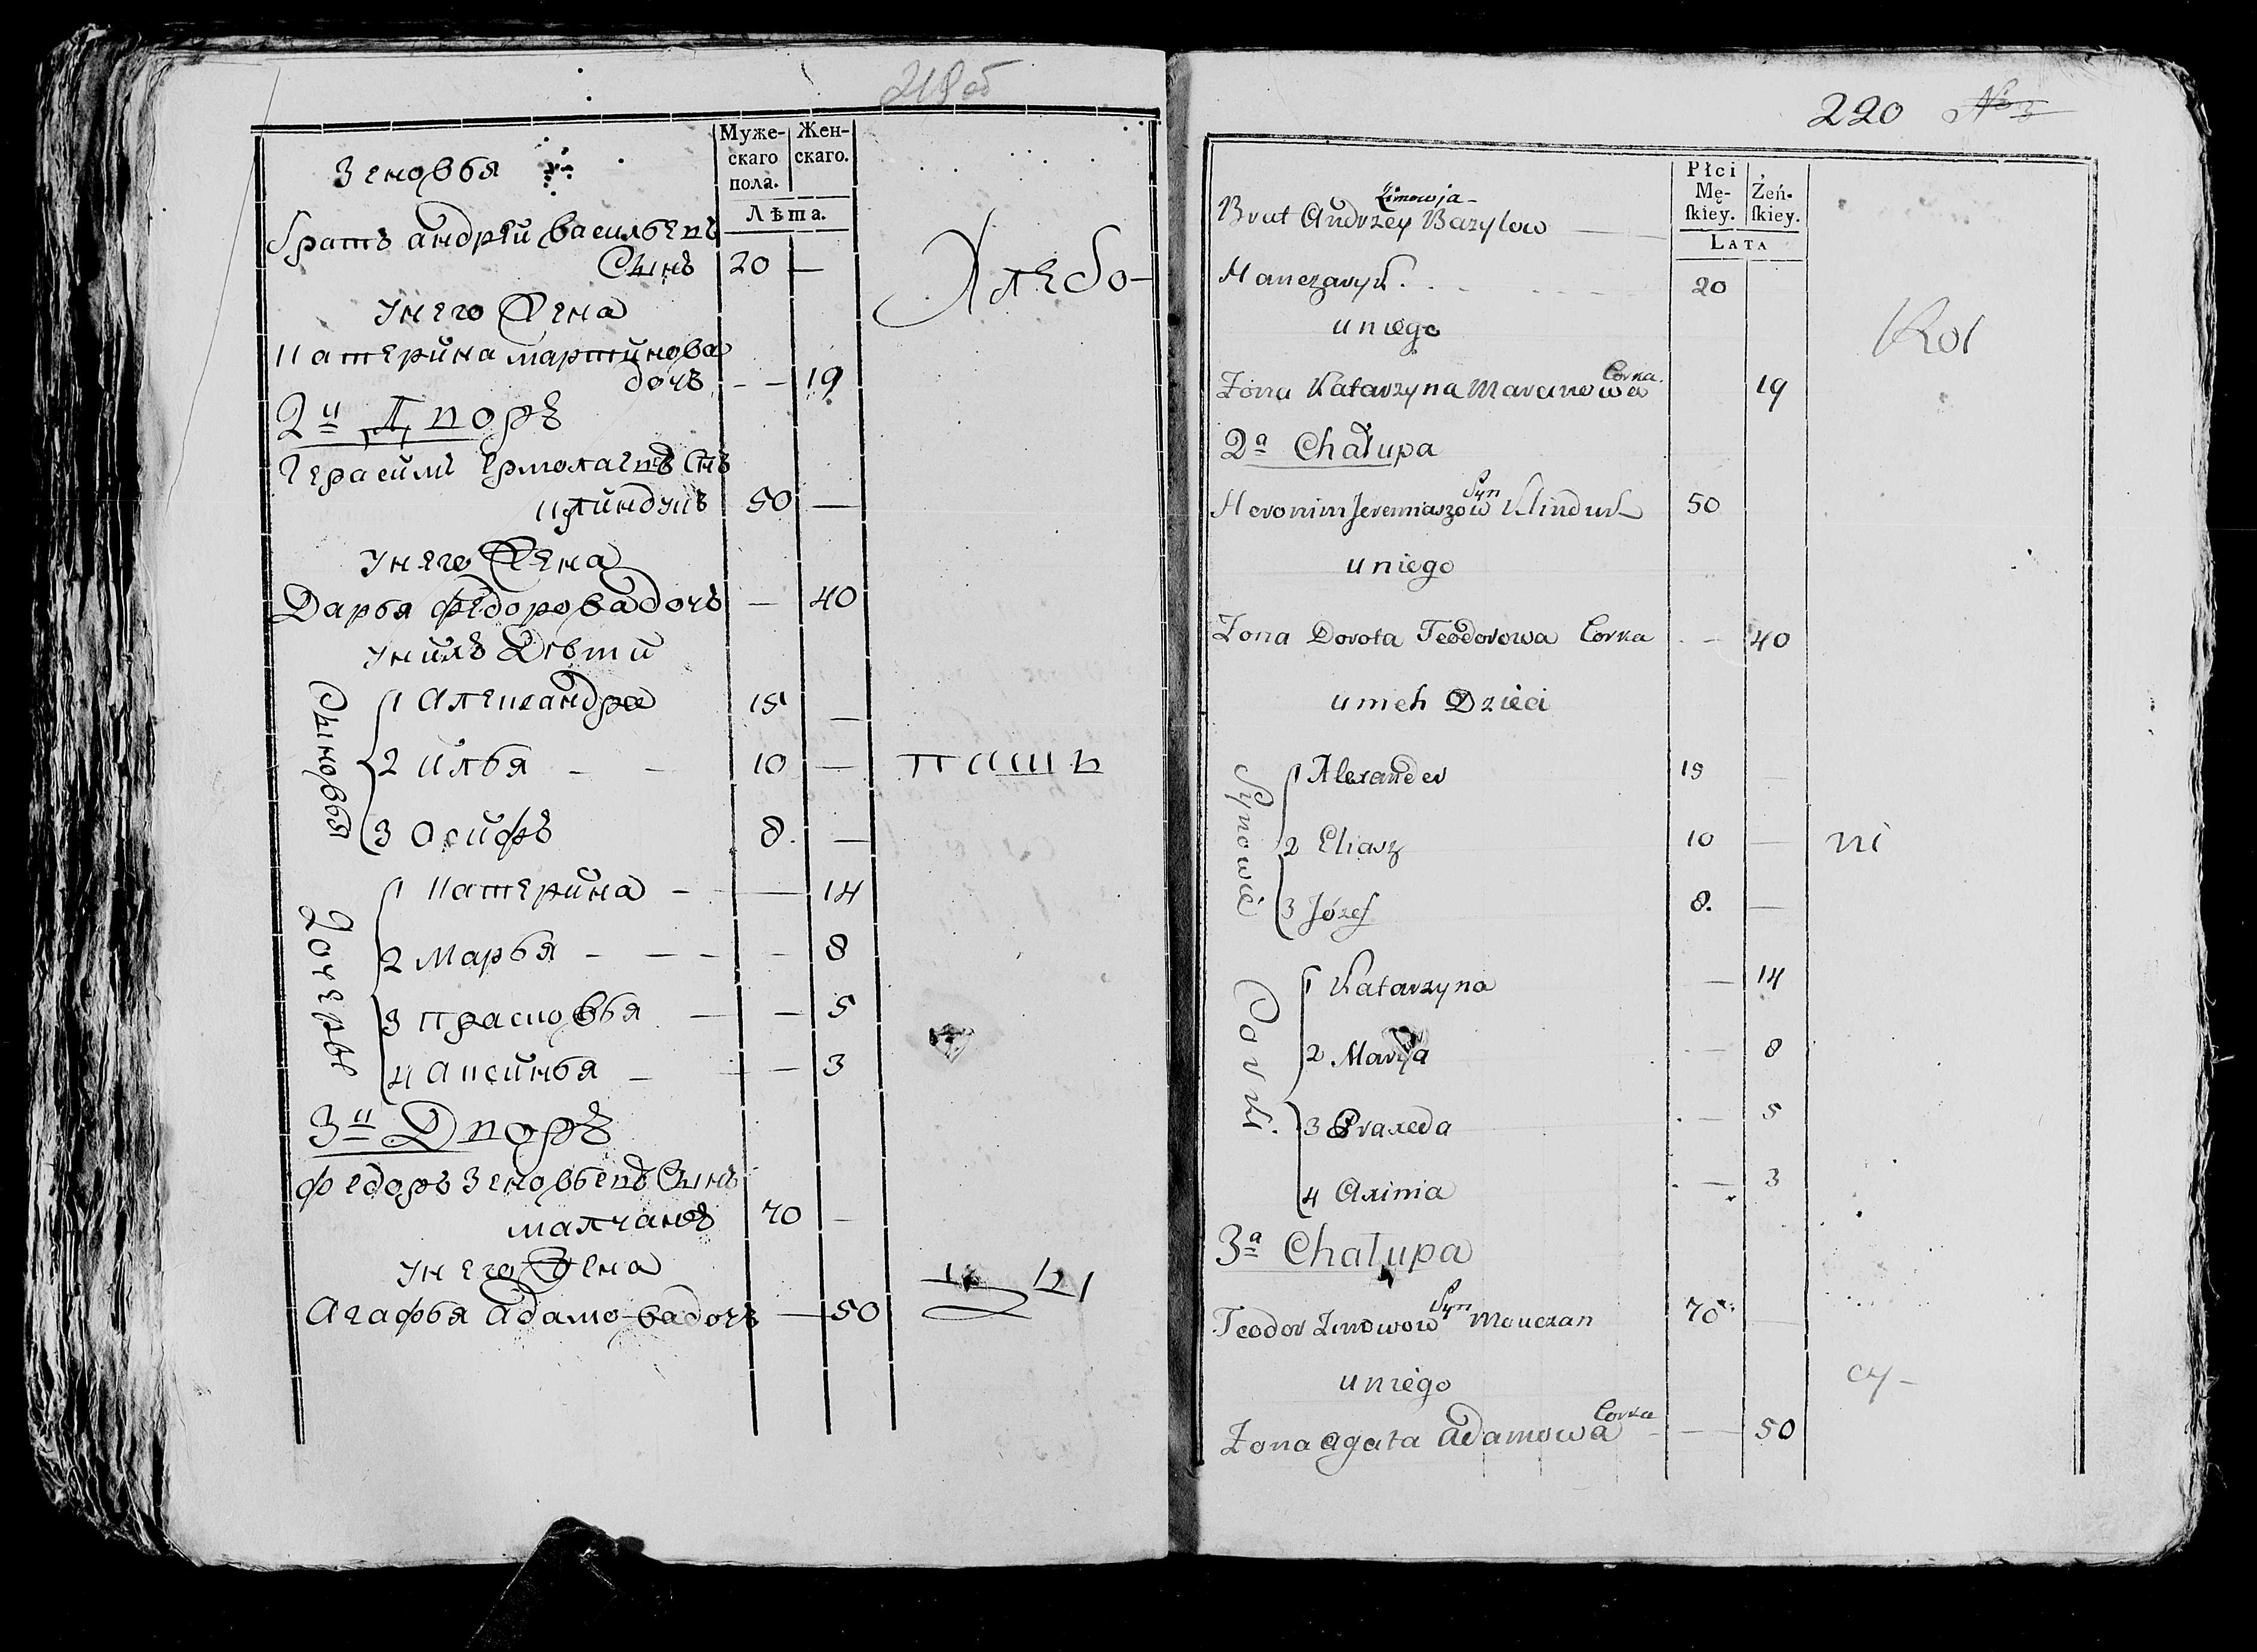 219 об
Муже-
скаго
пола.
Жен-
скаго.
Лѣта.
Зеновья
братъ андрей васильевъ
Сынъ 20 —
Унего Жена
Катерина мартинова
дочъ - — 19
Хлебо-
2й Дворъ
Герасимъ Ермолаевъ Снъ
Клиндукъ 50 —
Унего Жена
Дарья федорова дочъ — 40
Унихъ Дѣти
Сыновья
1 Александра 15 —
2 илья — — 10 —
3 Осифъ 8. —
пашц
Дочеры
1 Катерина — — 14
2 Марья — — - - 8
3 Прасковья — — 5
4 Аксинья — — 3
3й Дворъ
федоръ Зеновьевъ Сынъ
малчанъ 70 —
Унего Жена
Агафья адамовадочъ — 50
220 № 3
Płci
Mę-
ſkiey.
Żeń-
ſkiey.
LATA
Zimowja -
Brat Andrzey Bazylow
Hanczaryk. 20
uniego
Kol
Corka.
Zona Katarzyna Marcinowa 19
2a Chałupa
Syn
Heronim Jeremiaszow Klinduk 50
uniego
Zona Dorota Teodorowa Corka - — 40
unich Dzieci
Synowie
1 Alexander 15 —
2 Eliasz 10 —
3 Józef 8. —
ni
Corki.
1 Katarzyna — 14
2 Marija — 8
3 Praxeda - — 5
4 Axinia - — 3
3a Chałupa
Syn
Teodor Zinowow Mouczan 70 —
uniego
cy -
Corka
Zona Agata Adamowa — 50